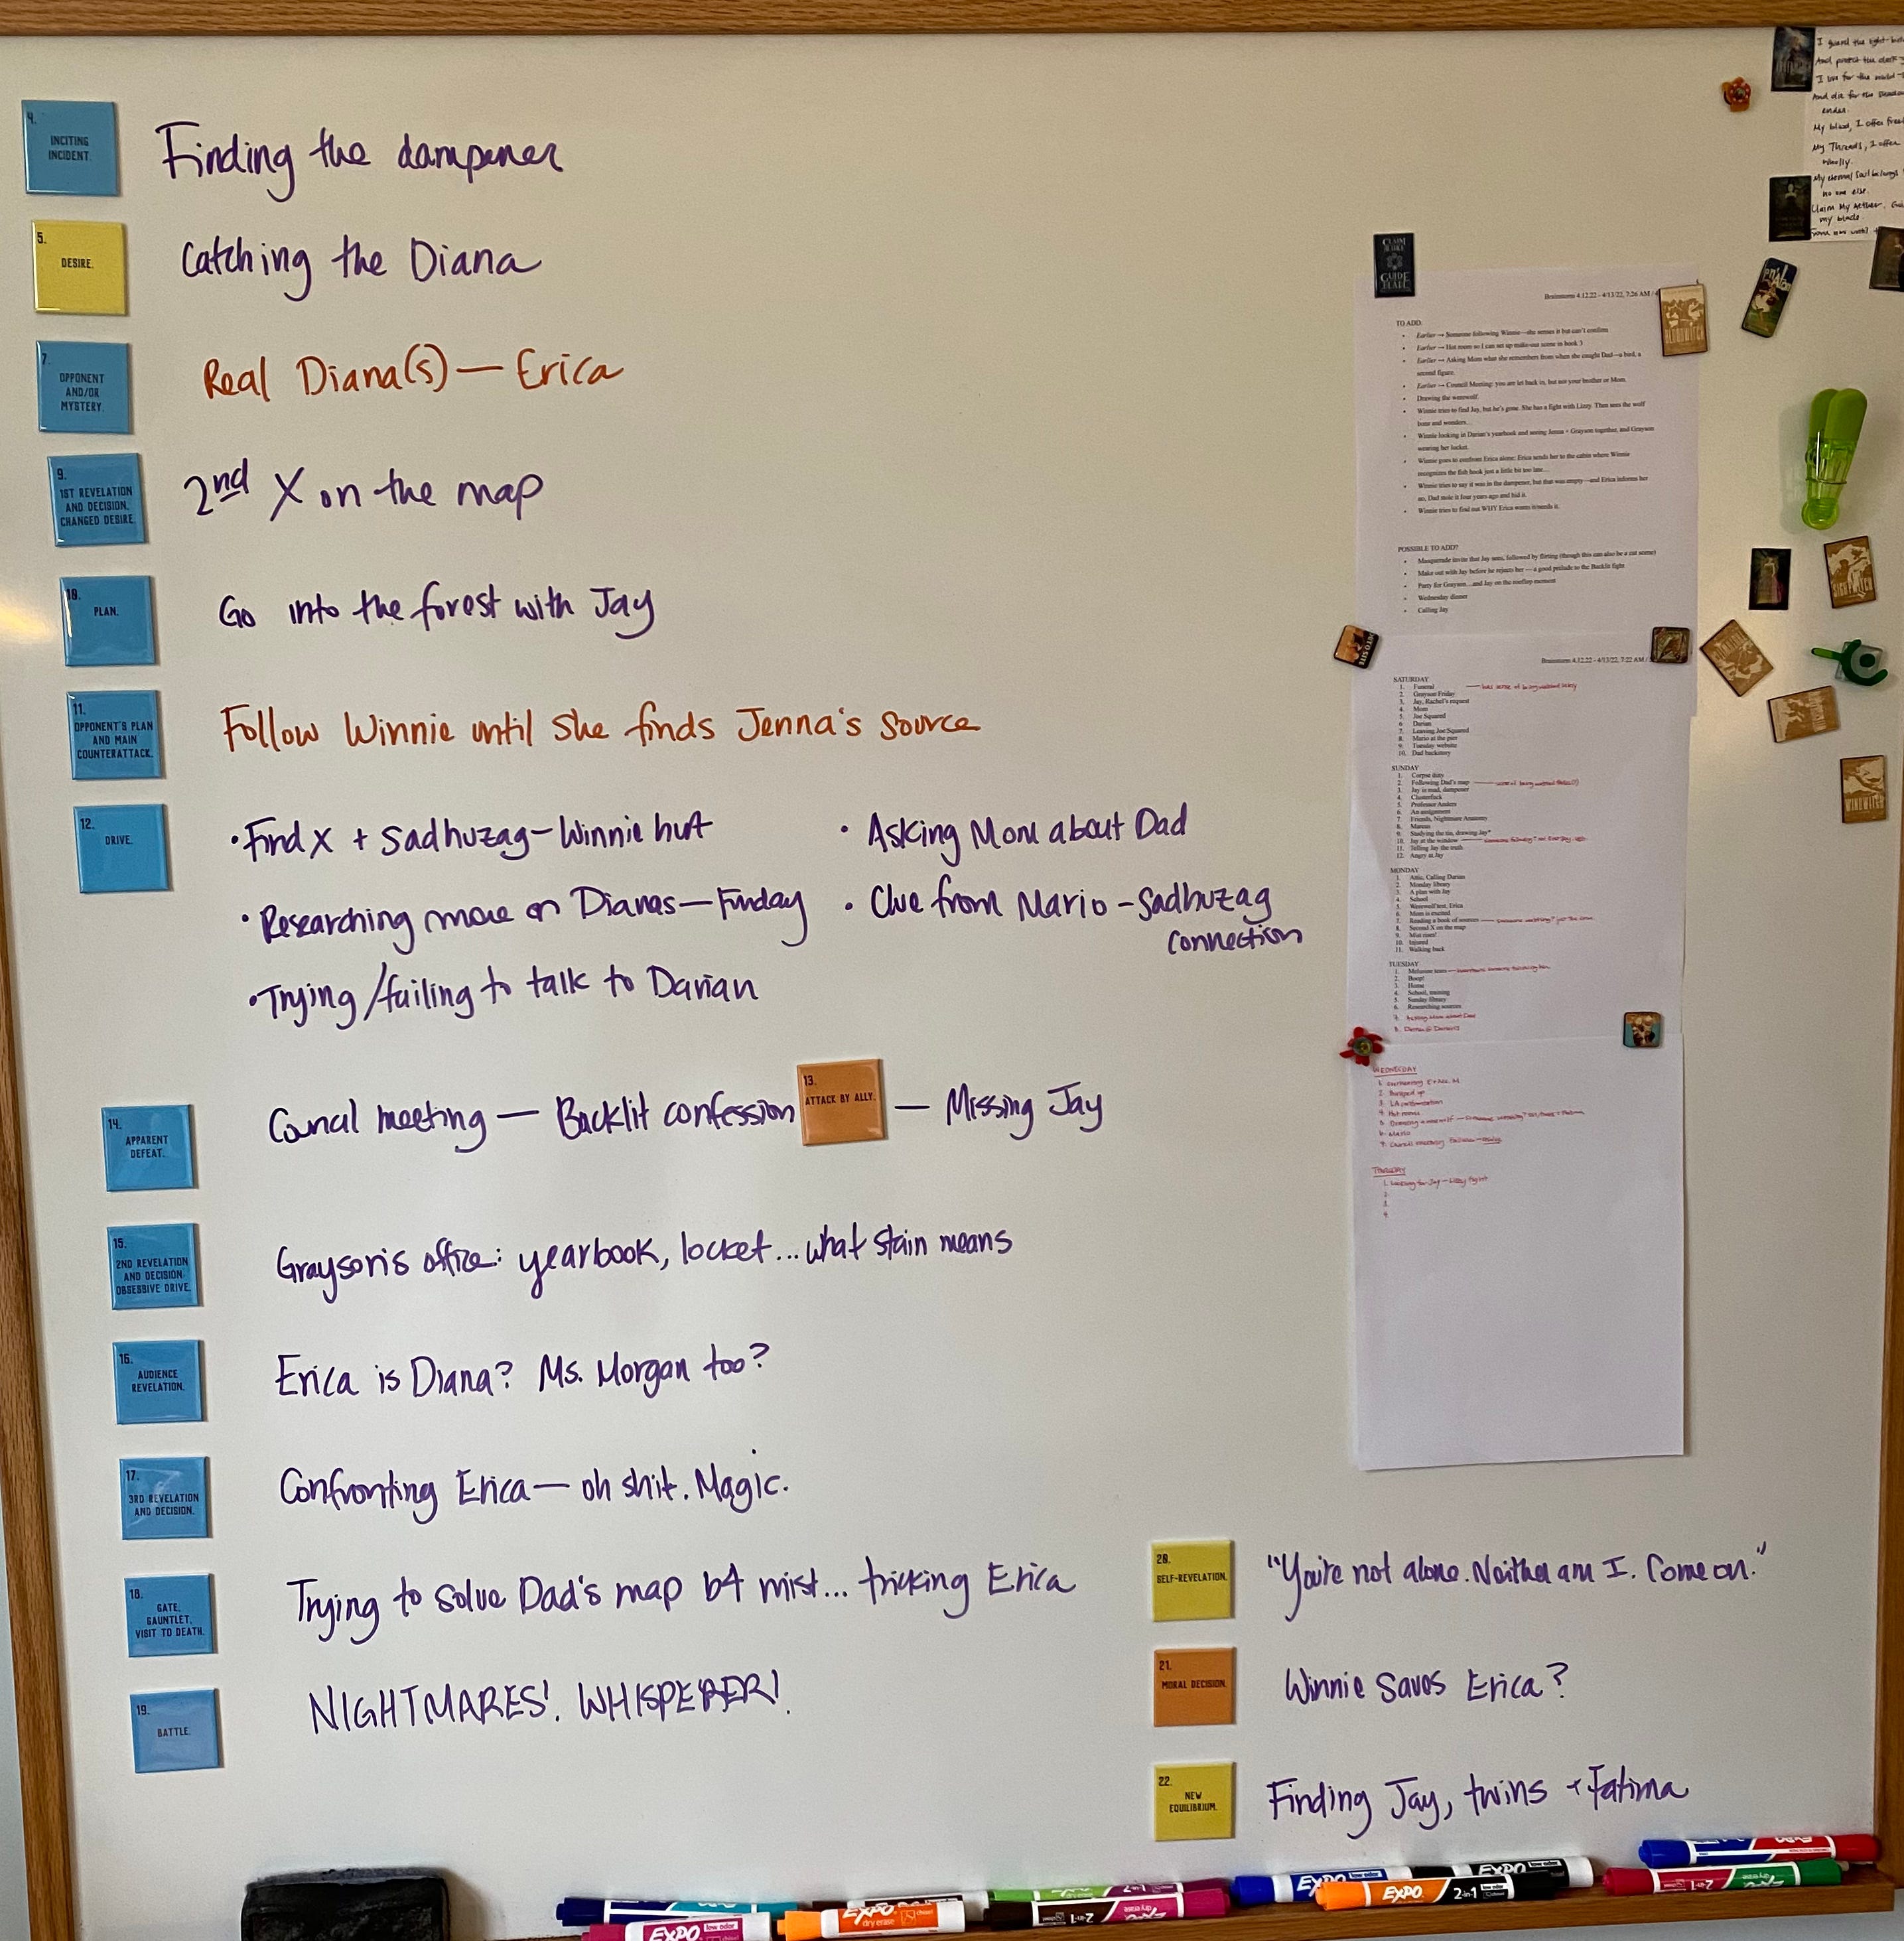 4.
INCITING
INCIDENT.
Finding the dampener
5.
DESIRE.
Catching the Diana
7.
OPPONENT
AND/OR
MYSTERY.
Real Diana(s) — Erica
9.
1ST REVELATION
AND DECISION,
CHANGED DESIRE.
2nd X on the map
10.
PLAN.
Go into the forest with Jay
11.
OPPONENT'S PLAN
AND MAIN
COUNTERATTACK.
Follow Winnie until she finds Jenna's source
12.
DRIVE.
• Find X + Sadhuzag – Winnie hurt
• Researching more on Dianas —
• Trying/failing to talk to Darian
• Asking Mom about Dad
• Clue from Mario – Sadhuzag
connection
14.
APPARENT
DEFEAT.
Council meeting — Backlit confession
13.
ATTACK BY ALLY.
— Missing Jay
15.
2ND REVELATION
AND DECISION,
OBSESSIVE DRIVE.
Grayson's office: yearbook, locket... what stain means
16.
AUDIENCE
REVELATION.
Erica is Diana? Ms. Morgan too?
17.
3RD REVELATION
AND DECISION.
Confronting Erica — oh shit. Magic.
18.
GATE,
GAUNTLET,
VISIT TO DEATH.
Trying to solve Dad's map b4 mist... tricking Erica
19.
BATTLE.
NIGHTMARES! WHISPERER!
20.
SELF-REVELATION.
"You're not alone. Neither am I. Come on."
21.
MORAL DECISION.
Winnie saves Erica?
22.
NEW
EQUILIBRIUM.
Finding Jay, twins + Fatima
And protect the dark
I live for the
And die for the
My blood, I offer
My Threads, I offer
wholly.
My eternal soul belongs
no one else.
Claim My Aether.
my blade.
CLAIM
GUIDE
BLADE
Brainstorm 4.12.22 - 4/13/22, 7:26 AM /
TO ADD:
• Earlier → Someone following Winnie—she senses it but can't confirm
• Earlier → Hot room so I can set up make-out scene in book 3
• Earlier → Asking Mom what she remembers from when she caught Dad—a bird, a
second figure.
• Earlier → Council Meeting: you are let back in, but not your brother or Mom.
• Drawing the werewolf.
• Winnie tries to find Jay, but he's gone. She has a fight with Lizzy. Then sees the wolf
bone and wonders...
• Winnie looking in Darian's yearbook and seeing Jenna + Grayson together, and Grayson
wearing her locket.
• Winnie goes to confront Erica alone: Erica sends her to the cabin where Winnie
recognizes the fish hook just a little bit too late...
• Winnie tries to say it was in the dampener, but that was empty—and Erica informs her
no, Dad stole it four years ago and hid it.
• Winnie tries to find out WHY Erica wants it/needs it.
POSSIBLE TO ADD?
• Masquerade invite that Jay sees, followed by flirting (though this can also be a cut scene)
• Make out with Jay before he rejects her — a good prelude to the Backlit fight
• Party for Grayson...and Jay on the rooftop moment
• Wednesday dinner
• Calling Jay
Brainstorm 4.12.22 - 4/13/22, 7:22 AM /
SATURDAY
1. Funeral
2. Grayson Friday
3. Jay, Rachel's request
4. Mom
5. Joe Squared
6. Darian
7. Leaving Joe Squared
8. Mario at the pier
9. Tuesday website
10. Dad backstory
SUNDAY
1. Corpse duty
2. Following Dad's map
3. Jay is mad, dampener
4. Clusterfuck
5. Professor Anders
6. An assignment
7. Friends, Nightmare Anatomy
8. Marcus
9. Studying the tin, drawing Jay*
10. Jay at the window
11. Telling Jay the truth
12. Angry at Jay
MONDAY
1. Attic, Calling Darian
2. Monday library
3. A plan with Jay
4. School
5. Werewolf test, Erica
6. Mom is excited
7. Reading a book of sources
8. Second X on the map
9. Mist rises!
10. Injured
11. Walking back
TUESDAY
1. Melusine tears
2. Boop!
3. Home
4. School, training
5. Sunday library
6. Researching sources
7. Asking Mom about Dad
WEDNESDAY
4. Hot room
6. Mario
THURSDAY
1. Looking for Jay — Lizzy fight
2.
3.
4.
BLOODWITCH
SIGHTWITCH
WINDWITCH
EXPO
low odor
EXPO
dry erase
2-in-1
EXPO
EXPO
low odor
EXPO
2-in-1
2-in-1
EXPO